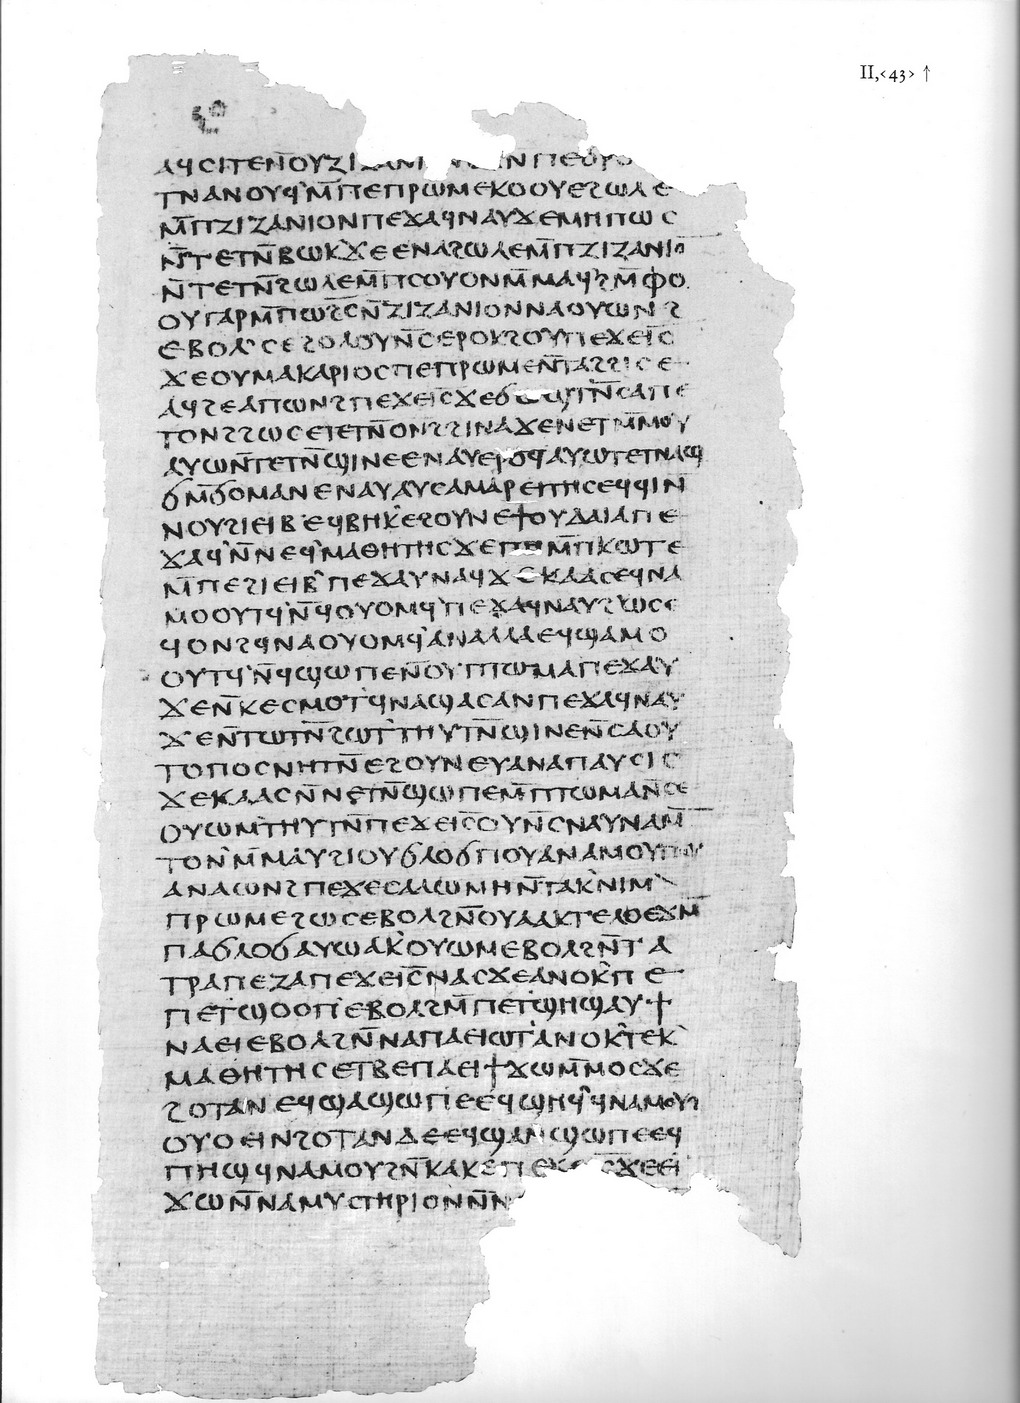 II,<43> ↑
ⲁϥⲥⲓⲧⲉ ⲛ̄ⲟⲩⲍⲓⲍⲁⲛⲓ ⲛ ⲡⲉϭⲣⲟ
ⲧⲛⲁⲛⲟⲩϥ' ⲙ̄ⲡⲉ ⲡⲣⲱⲙⲉ ⲕⲟⲟⲩ ⲉϩⲱⲗⲉ
ⲙ̄ⲡⲍⲓⲍⲁⲛⲓⲟⲛ ⲡⲉϫⲁϥ ⲛⲁⲩ ϫⲉ ⲙⲏⲡⲱⲥ
ⲛ̄ⲧⲉⲧⲛ̄ⲃⲱⲕ' ϫⲉ ⲉⲛⲁϩⲱⲗⲉ ⲙ̄ⲡⲍⲓⲍⲁⲛⲓⲟ
ⲛ̄ⲧⲉⲧⲛ̄ϩⲱⲗⲉ ⲙ̄ⲡⲥⲟⲩⲟ ⲛⲙ̄ⲙⲁϥ' ϩⲙ̄ ⲫⲟ
ⲟⲩ ⲅⲁⲣ ⲙ̄ⲡⲱϩⲥ̄ ⲛ̄ⲍⲓⲍⲁⲛⲓⲟⲛ ⲛⲁⲟⲩⲱⲛϩ
ⲉⲃⲟⲗ' ⲥⲉϩⲟⲗⲟⲩ ⲛ̄ⲥⲉⲣⲟⲕϩⲟⲩ ⲡⲉϫⲉ ⲓ̄ⲥ̄
ϫⲉ ⲟⲩⲙⲁⲕⲁⲣⲓⲟⲥ ⲡⲉ ⲡⲣⲱⲙⲉ ⲛ̄ⲧⲁϩϩⲓⲥⲉ
ⲁϥϩⲉ ⲁⲡⲱⲛϩ ⲡⲉϫⲉ ⲓ̄ⲥ̄ ϫⲉ ϭⲱϣⲧ' ⲛ̄ⲥⲁ ⲡⲉ
ⲧⲟⲛϩ ϩⲱⲥ ⲉⲧⲉⲧⲛ̄ⲟⲛϩ ϩⲓⲛⲁ ϫⲉ ⲛⲉⲧⲙ̄ⲙⲟⲩ
ⲁⲩⲱ ⲛ̄ⲧⲉⲧⲛ̄ϣⲓⲛⲉ ⲉⲛⲁⲩ ⲉⲣⲟϥ ⲁⲩⲱ ⲧⲉⲧⲛⲁϣ
ϭⲙ̄ϭⲟⲙ ⲁⲛ ⲉⲛⲁⲩ ⲁⲩⲥⲁⲙⲁⲣⲉⲓⲧⲏⲥ ⲉϥϥⲓ ⲛ̄
ⲛⲟⲩϩⲓⲉⲓⲃ' ⲉϥⲃⲏⲕ' ⲉϩⲟⲩⲛ ⲉϯⲟⲩⲇⲁⲓⲁ ⲡⲉ
ϫⲁϥ' ⲛ̄ⲛⲉϥ'ⲙⲁⲑⲏⲧⲏⲥ ϫⲉ ⲡⲏ ⲙ̄ⲡⲕⲱⲧⲉ
ⲙ̄ⲡⲉϩⲓⲉⲓⲃ' ⲡⲉϫⲁⲩ ⲛⲁϥ ϫⲉⲕⲁⲁⲥ ⲉϥⲛⲁ
ⲙⲟⲟⲩⲧϥ' ⲛ̄ϥⲟⲩⲟⲙϥ' ⲡⲉϫⲁϥ ⲛⲁⲩ ϩⲱⲥ ⲉ
ϥⲟⲛϩ ϥⲛⲁⲟⲩⲟⲙϥ' ⲁⲛ ⲁⲗⲗⲁ ⲉϥϣⲁⲙⲟ
ⲟⲩⲧϥ' ⲛ̄ϥϣⲱⲡⲉ ⲛ̄ⲟⲩⲡⲧⲱⲙⲁ ⲡⲉϫⲁⲩ
ϫⲉ ⲛ̄ⲕⲉⲥⲙⲟⲧ' ϥⲛⲁϣⲁⲥ ⲁⲛ ⲡⲉϫⲁϥ ⲛⲁⲩ
ϫⲉ ⲛ̄ⲧⲱⲧⲛ̄ ϩⲱⲧ'ⲧⲏⲩⲧⲛ̄ ϣⲓⲛⲉ ⲛ̄ⲥⲁ ⲟⲩ
ⲧⲟⲡⲟⲥ ⲛⲏⲧⲛ̄ ⲉϩⲟⲩⲛ ⲉⲩⲁⲛⲁⲡⲁⲩⲥⲓⲥ
ϫⲉⲕⲁⲁⲥ ⲛ̄ⲛⲉⲧⲛ̄ϣⲱⲡⲉ ⲙ̄ⲡⲧⲱⲙⲁ ⲛ̄ⲥⲉ
ⲟⲩⲱⲙ' ⲧⲏⲩⲧⲛ̄ ⲡⲉϫⲉ ⲓ̄ⲥ̄ ⲟⲩⲛ̄ ⲥⲛⲁⲩ ⲛⲁⲙ̄
ⲧⲟⲛ' ⲙ̄ⲙⲁⲩ ϩⲓ ⲟⲩϭⲗⲟϭ ⲡⲟⲩⲁ ⲛⲁⲙⲟⲩ ⲡⲟⲩ
ⲁ ⲛⲁⲱⲛϩ ⲡⲉϫⲉ ⲥⲁⲗⲱⲙⲏ ⲛ̄ⲧⲁⲕ' ⲛⲓⲙ'
ⲡⲣⲱⲙⲉ ϩⲱⲥ ⲉⲃⲟⲗ ϩⲛ̄ ⲟⲩⲁ ⲁⲕⲧⲉⲗⲟ ⲉϫⲙ̄
ⲡⲁϭⲗⲟϭ ⲁⲩⲱ ⲁⲕ'ⲟⲩⲱⲙ ⲉⲃⲟⲗ ϩⲛ̄ ⲧⲁ
ⲧⲣⲁⲡⲉⲍⲁ ⲡⲉϫⲉ ⲓ̄ⲥ̄ ⲛⲁⲥ ϫⲉ ⲁⲛⲟⲕ' ⲡⲉ
ⲡⲉⲧϣⲟⲟⲡ' ⲉⲃⲟⲗ ϩⲙ̄ ⲡⲉⲧ'ϣⲏϣ ⲁⲩϯ
ⲛⲁⲉⲓ ⲉⲃⲟⲗ ϩⲛ̄ ⲛⲁ ⲡⲁⲉⲓⲱⲧ' ⲁⲛⲟⲕ' ⲧⲉⲕ'
ⲙⲁⲑⲏⲧⲏⲥ ⲉⲧⲃⲉ ⲡⲁⲉⲓ ϯϫⲱ ⲙ̄ⲙⲟⲥ ϫⲉ
ϩⲟⲧⲁⲛ ⲉϥϣⲁϣⲱⲡⲉ ⲉϥϣⲏϥ' ϥⲛⲁⲙⲟⲩϩ
ⲟⲩⲟⲉⲓⲛ ϩⲟⲧⲁⲛ ⲇⲉ ⲉϥϣⲁⲛϣⲱⲡⲉ ⲉϥ
ⲡⲏϣ ϥⲛⲁⲙⲟⲩϩ ⲛ̄ⲕⲁⲕⲉ ⲡⲉϫⲉ ⲓ̄ⲥ̄ ϫⲉ ⲉⲓ
ϫⲱ ⲛ̄ⲛⲁⲙⲩⲥⲧⲏⲣⲓⲟⲛ ⲛ̄ⲛ